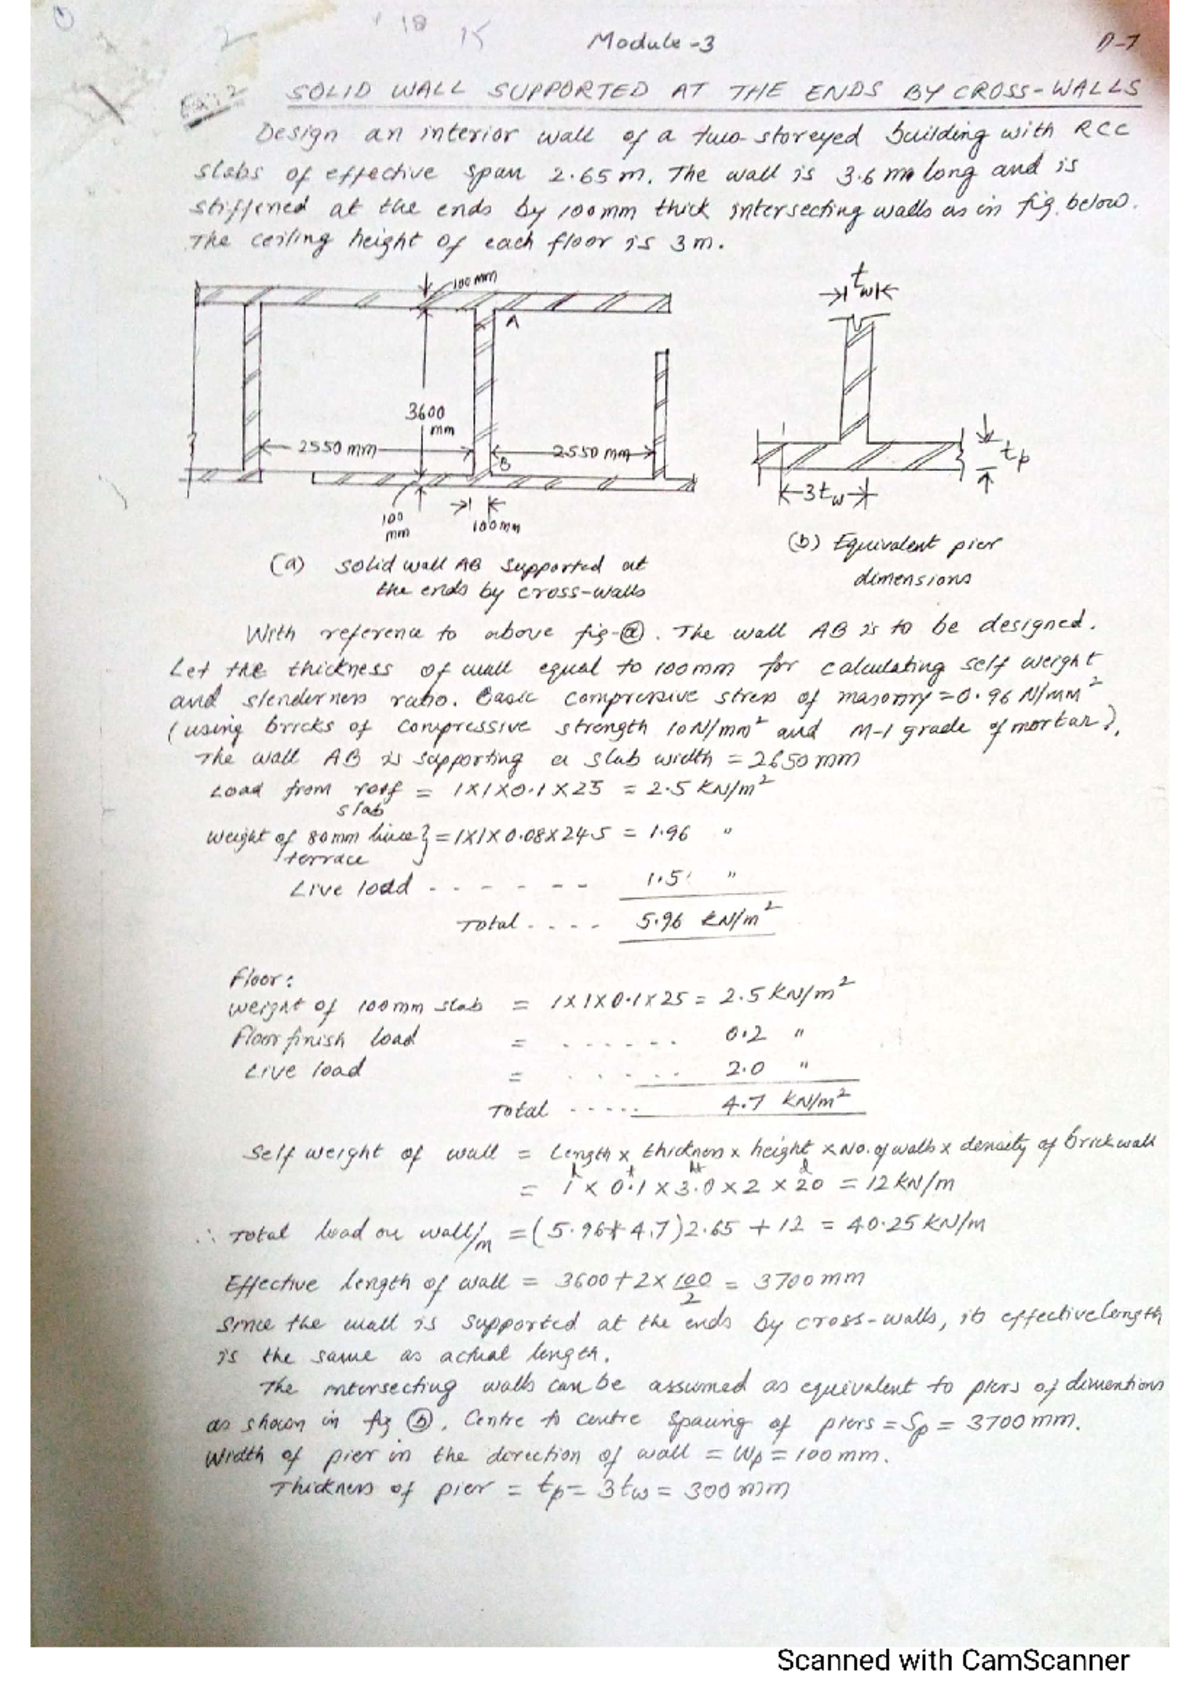 18
2 15 Module-3 D-7
SOLID WALL SUPPORTED AT THE ENDS BY CROSS-WALLS
Design an interior wall of a two-storeyed building with RCC
slabs of effective span 2.65 m. The wall is 3.6 m long and is
stiffened at the ends by 100mm thick intersecting walls as in fig. below.
The ceiling height of each floor is 3 m.
100 mm
A
3600
mm
2550 mm
2550 mm
B
100
mm
100mm
tw
tp
3tw
(a) Solid wall AB supported at
the ends by cross-walls
(b) Equivalent pier
dimensions
With reference to above fig-(a). The wall AB is to be designed.
Let the thickness of wall equal to 100mm for calculating self weight
and slenderness ratio. Basic compressive stress of masonry = 0.96 N/mm²
(using bricks of compressive strength 10N/mm² and M-1 grade of mortar).
The wall AB is supporting a slab width = 2650 mm
Load from roof = 1x1x0.1x25 = 2.5 KN/m²
slab
Weight of 80mm lime } = 1x1x0.08x24.5 = 1.96 "
terrace
Live load - - - - - - 1.5 "
Total . . . . 5.96 KN/m²
Floor:
Weight of 100mm slab = 1x1x0.1x25 = 2.5 KN/m²
Floor finish load = . . . . . . 0.2 "
Live load = . . . . . 2.0 "
Total ..... 4.7 KN/m²
Self weight of wall = Length x thickness x height x No. of walls x density of brick wall
= 1 x 0.1 x 3.0 x 2 x 20 = 12 KN/m
∴ Total load on wall/m = (5.96+4.7)2.65 + 12 = 40.25 KN/m
Effective length of wall = 3600 + 2x 100/2 = 3700 mm
Since the wall is supported at the ends by cross-walls, its effective length
is the same as actual length.
The intersecting walls can be assumed as equivalent to piers of dimentions
as shown in fig (b). Centre to centre spacing of piers = Sp = 3700 mm.
Width of pier in the direction of wall = Wp = 100 mm.
Thickness of pier = tp = 3tw = 300 mm
Scanned with CamScanner